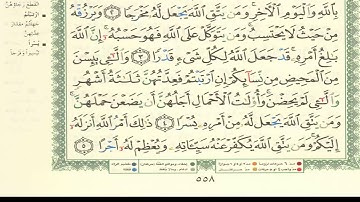 بِٱللَّهِ وَٱلۡيَوۡمِ ٱلۡأٓخِرِۚ وَمَن يَتَّقِ ٱللَّهَ يَجۡعَل لَّهُۥ مَخۡرَجٗا ٢ وَيَرۡزُقۡهُ
مِنۡ حَيۡثُ لَا يَحۡتَسِبُۚ وَمَن يَتَوَكَّلۡ عَلَى ٱللَّهِ فَهُوَ حَسۡبُهُۥٓۚ إِنَّ ٱللَّهَ
بَٰلِغُ أَمۡرِهِۦۚ قَدۡ جَعَلَ ٱللَّهُ لِكُلِّ شَيۡءٖ قَدۡرٗا ٣ وَٱلَّٰٓـِٔي يَئِسۡنَ
مِنَ ٱلۡمَحِيضِ مِن نِّسَآئِكُمۡ إِنِ ٱرۡتَبۡتُمۡ فَعِدَّتُهُنَّ ثَلَٰثَةُ أَشۡهُرٖ
وَٱلَّٰٓـِٔي لَمۡ يَحِضۡنَۚ وَأُوْلَٰتُ ٱلۡأَحۡمَالِ أَجَلُهُنَّ أَن يَضَعۡنَ حَمۡلَهُنَّۚ
وَمَن يَتَّقِ ٱللَّهَ يَجۡعَل لَّهُۥ مِنۡ أَمۡرِهِۦ يُسۡرٗا ٤ ذَٰلِكَ أَمۡرُ ٱللَّهِ أَنزَلَهُۥٓ
إِلَيۡكُمۡۚ وَمَن يَتَّقِ ٱللَّهَ يُكَفِّرۡ عَنۡهُ سَيِّـَٔاتِهِۦ وَيُعۡظِمۡ لَهُۥٓ أَجۡرًا ٥
٥٥٨